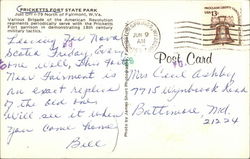 PRICKETTS FORT STATE PARK
Just Off I-79 North of Fairmont, W.Va.
Various Brigade of the American Revolution
members periodically serve with the Pricketts
Fort garrison in demonstrating 18th century
military tactics.
Friday Every
one well, This Fort
Near Fairmont is
an exact replica
of the old one
will see it when
you come home
Bill
JUN 9
AM
Post Card
Mrs Ceil Ashby
7715 Wynbrook Road
Baltimore Md.
21224